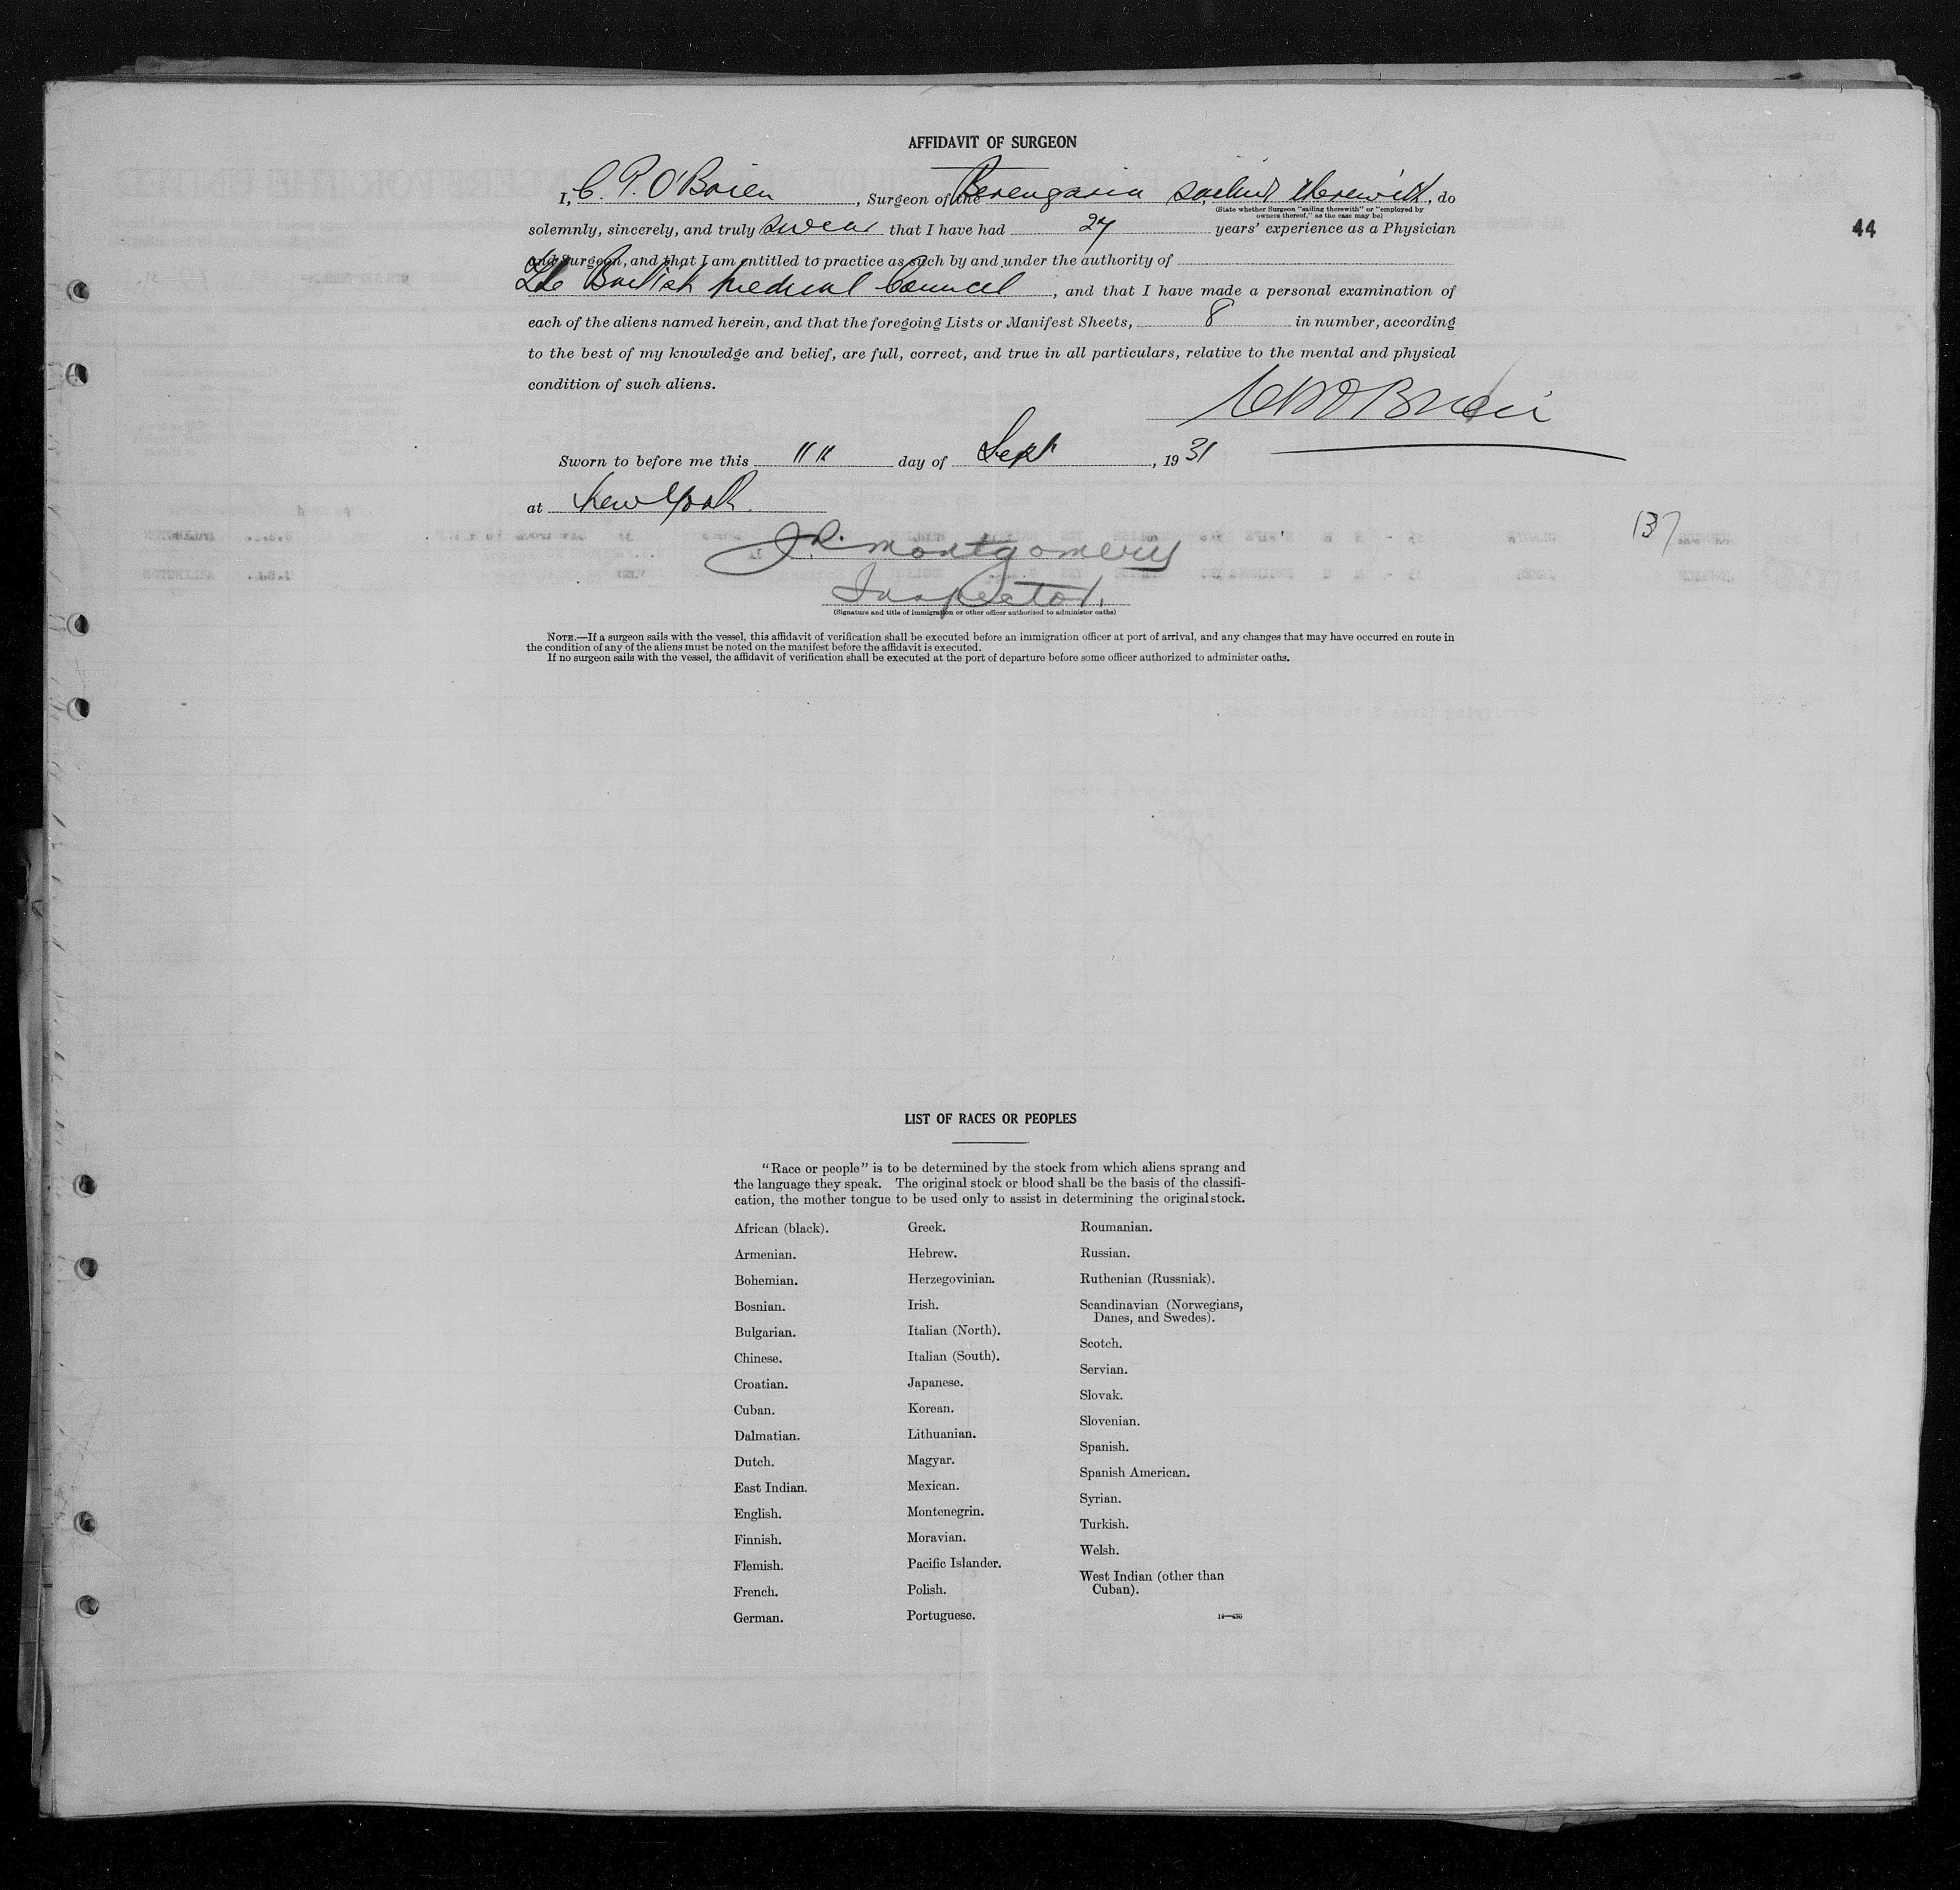 AFFIDAVIT OF SURGEON
I, C. P. O'Brien, Surgeon of the Berengaria sailing therewith, do
(State whether Surgeon "sailing therewith" or "employed by
owners thereof," as the case may be)
solemnly, sincerely, and truly swear that I have had 27 years' experience as a Physician
44
and Surgeon, and that I am entitled to practice as such by and under the authority of
The British Medical Council, and that I have made a personal examination of
each of the aliens named herein, and that the foregoing Lists or Manifest Sheets, 8 in number, according
to the best of my knowledge and belief, are full, correct, and true in all particulars, relative to the mental and physical
condition of such aliens.
C P O'Brien
Sworn to before me this 11 day of Sept, 1931
at New York.
137
J.R. Montgomery
Inspector.
(Signature and title of immigration or other officer authorized to administer oaths)
NOTE.—If a surgeon sails with the vessel, this affidavit of verification shall be executed before an immigration officer at port of arrival, and any changes that may have occurred en route in
the condition of any of the aliens must be noted on the manifest before the affidavit is executed.
If no surgeon sails with the vessel, the affidavit of verification shall be executed at the port of departure before some officer authorized to administer oaths.
LIST OF RACES OR PEOPLES
"Race or people" is to be determined by the stock from which aliens sprang and
the language they speak. The original stock or blood shall be the basis of the classifi-
cation, the mother tongue to be used only to assist in determining the original stock.
African (black).
Armenian.
Bohemian.
Bosnian.
Bulgarian.
Chinese.
Croatian.
Cuban.
Dalmatian.
Dutch.
East Indian.
English.
Finnish.
Flemish.
French.
German.
Greek.
Hebrew.
Herzegovinian.
Irish.
Italian (North).
Italian (South).
Japanese.
Korean.
Lithuanian.
Magyar.
Mexican.
Montenegrin.
Moravian.
Pacific Islander.
Polish.
Portuguese.
Roumanian.
Russian.
Ruthenian (Russniak).
Scandinavian (Norwegians,
Danes, and Swedes).
Scotch.
Servian.
Slovak.
Slovenian.
Spanish.
Spanish American.
Syrian.
Turkish.
Welsh.
West Indian (other than
Cuban).